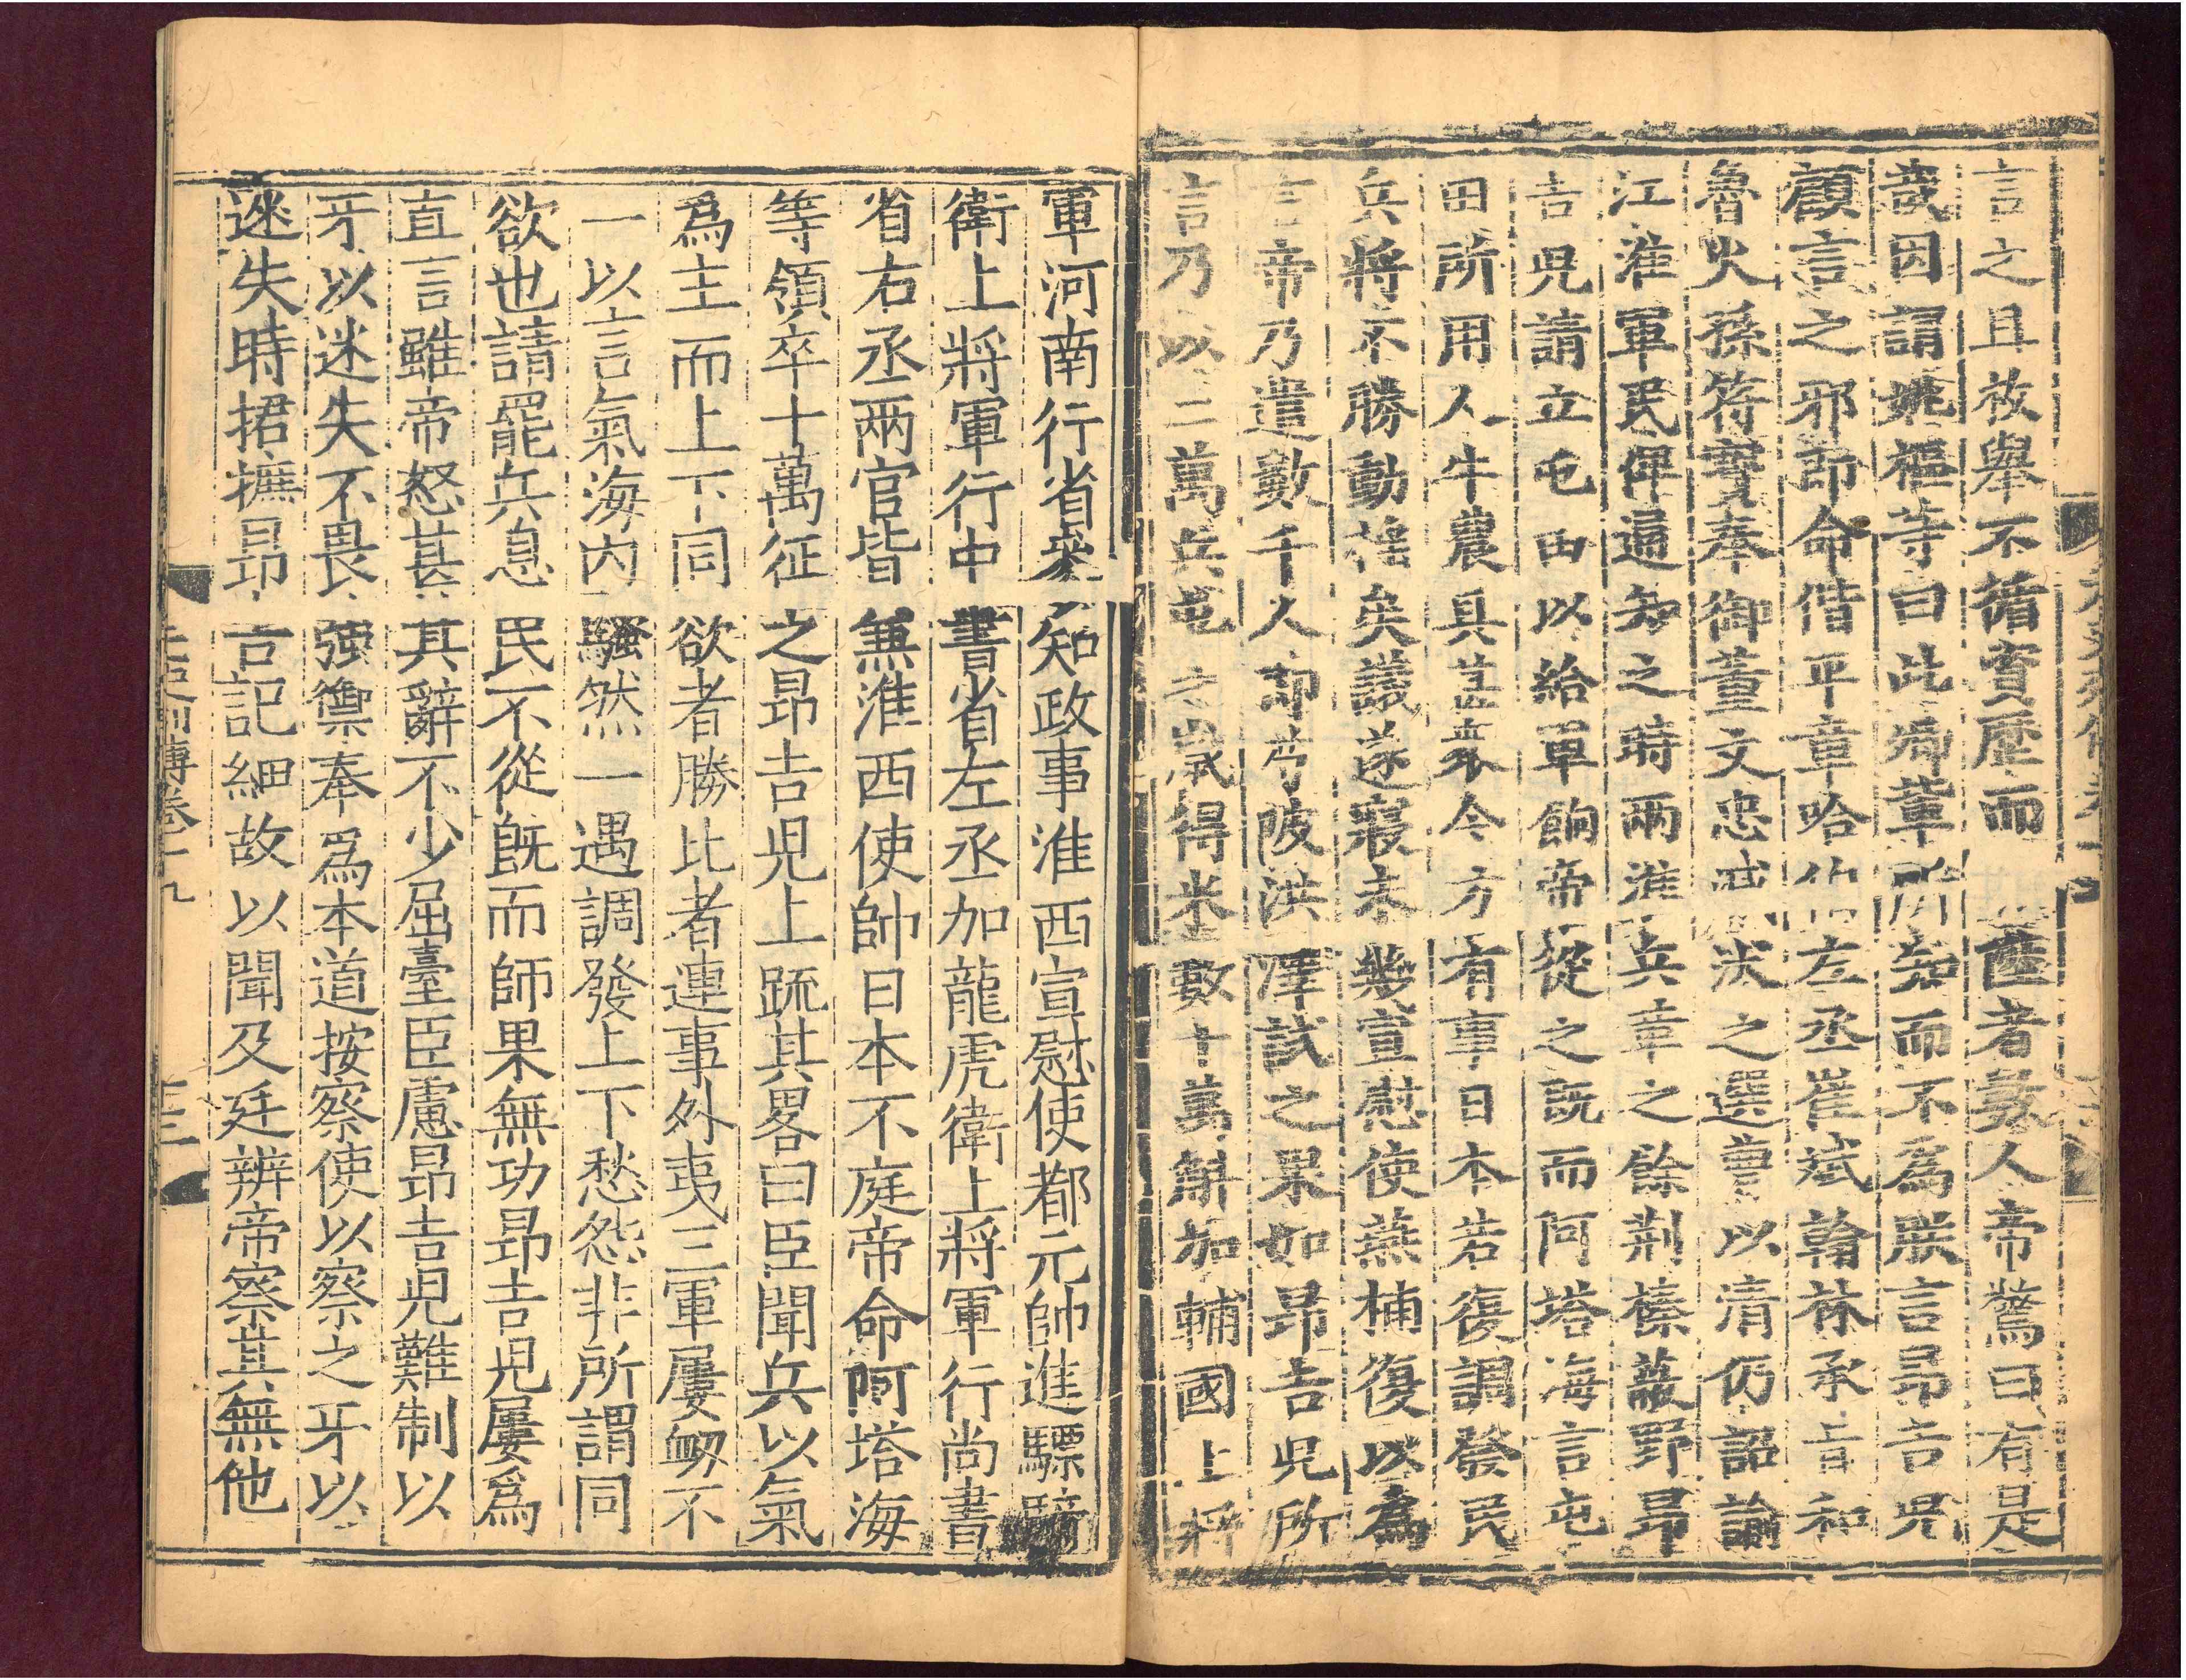 言之且故舉不循資歷而蓰者數人帝驚曰有是
哉因謂姚樞等曰此卿輩所知而不為朕言昂吉兒
顧言之邪即命偕平章哈伯左丞崔斌翰林承旨和
魯火孫符寶奉御董文忠減汰之選曹以清仍詔諭
江淮軍民俾遍知之時兩淮兵革之餘荆榛蔽野昂
吉兒請立屯田以給軍餉帝從之既而阿塔海言屯
田所用人牛農具甚衆今方有事日本若復調發民
兵將不勝動搖矣議遂寢未幾宣慰使燕楠復以為
言帝乃遣數千人即芍陂洪澤試之果如昂吉兒所
言乃以二萬兵屯之歲得米數十萬斛加輔國上將
軍河南行省參知政事淮西宣慰使都元帥進驃騎
衛上將軍行中書省左丞加龍虎衛上將軍行尚書
省右丞兩官皆兼淮西使帥日本不庭帝命阿塔海
等領卒十萬征之昂吉兒上疏其畧曰臣聞兵以氣
爲主而上下同欲者勝比者連事外夷三軍屢衂不
一以言氣海内騷然一遇調發上下愁怨非所謂同
欲也請罷兵息民不從既而師果無功昂吉兒屢爲
直言雖帝怒甚其辭不少屈臺臣慮昂吉兒難制以
牙以迷失不畏強禦奉爲本道按察使以察之牙以
迷失時捃摭昂言記細故以聞及廷辨帝察其無他
元史列傳卷十九